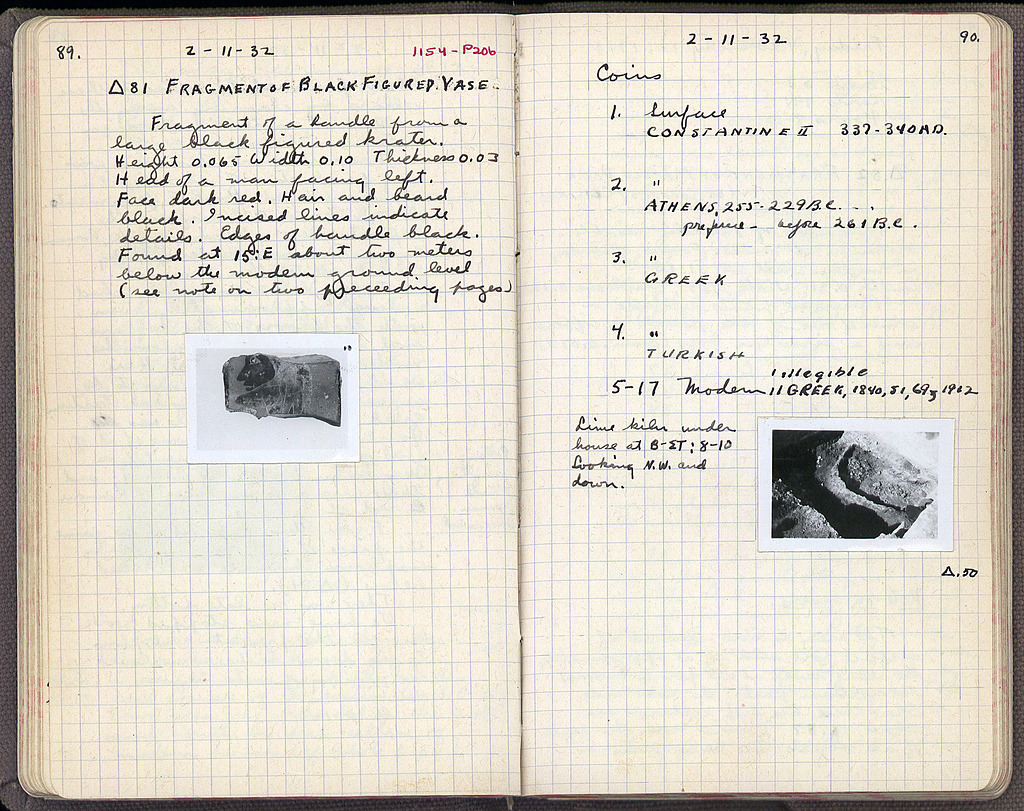 89.
2-11-32
1154-P206
Δ81 FRAGMENT OF BLACK FIGURED VASE.
Fragment of a handle from a
large black figured krater.
Height 0.065 Width 0.10 Thickness 0.03
Head of a man facing left.
Face dark red. Hair and beard
black. Incised lines indicate
details. Edges of handle black.
Found at 15:E about two meters
below the modern ground level
(see note on two preceeding pages)
2-11-32
90.
Coins
1. Surface
CONSTANTINE II 337-340 AD.
2. "
ATHENS, 255-229 B.C. . .
before 261 B.C.
3. "
GREEK
4. "
TURKISH
illegible
5-17 Modern 11 GREEK, 1840, 51, 69, 1912
Lime kiln under
house at B-ΣT; 8-10
Looking N.W. and
down.
Δ.50